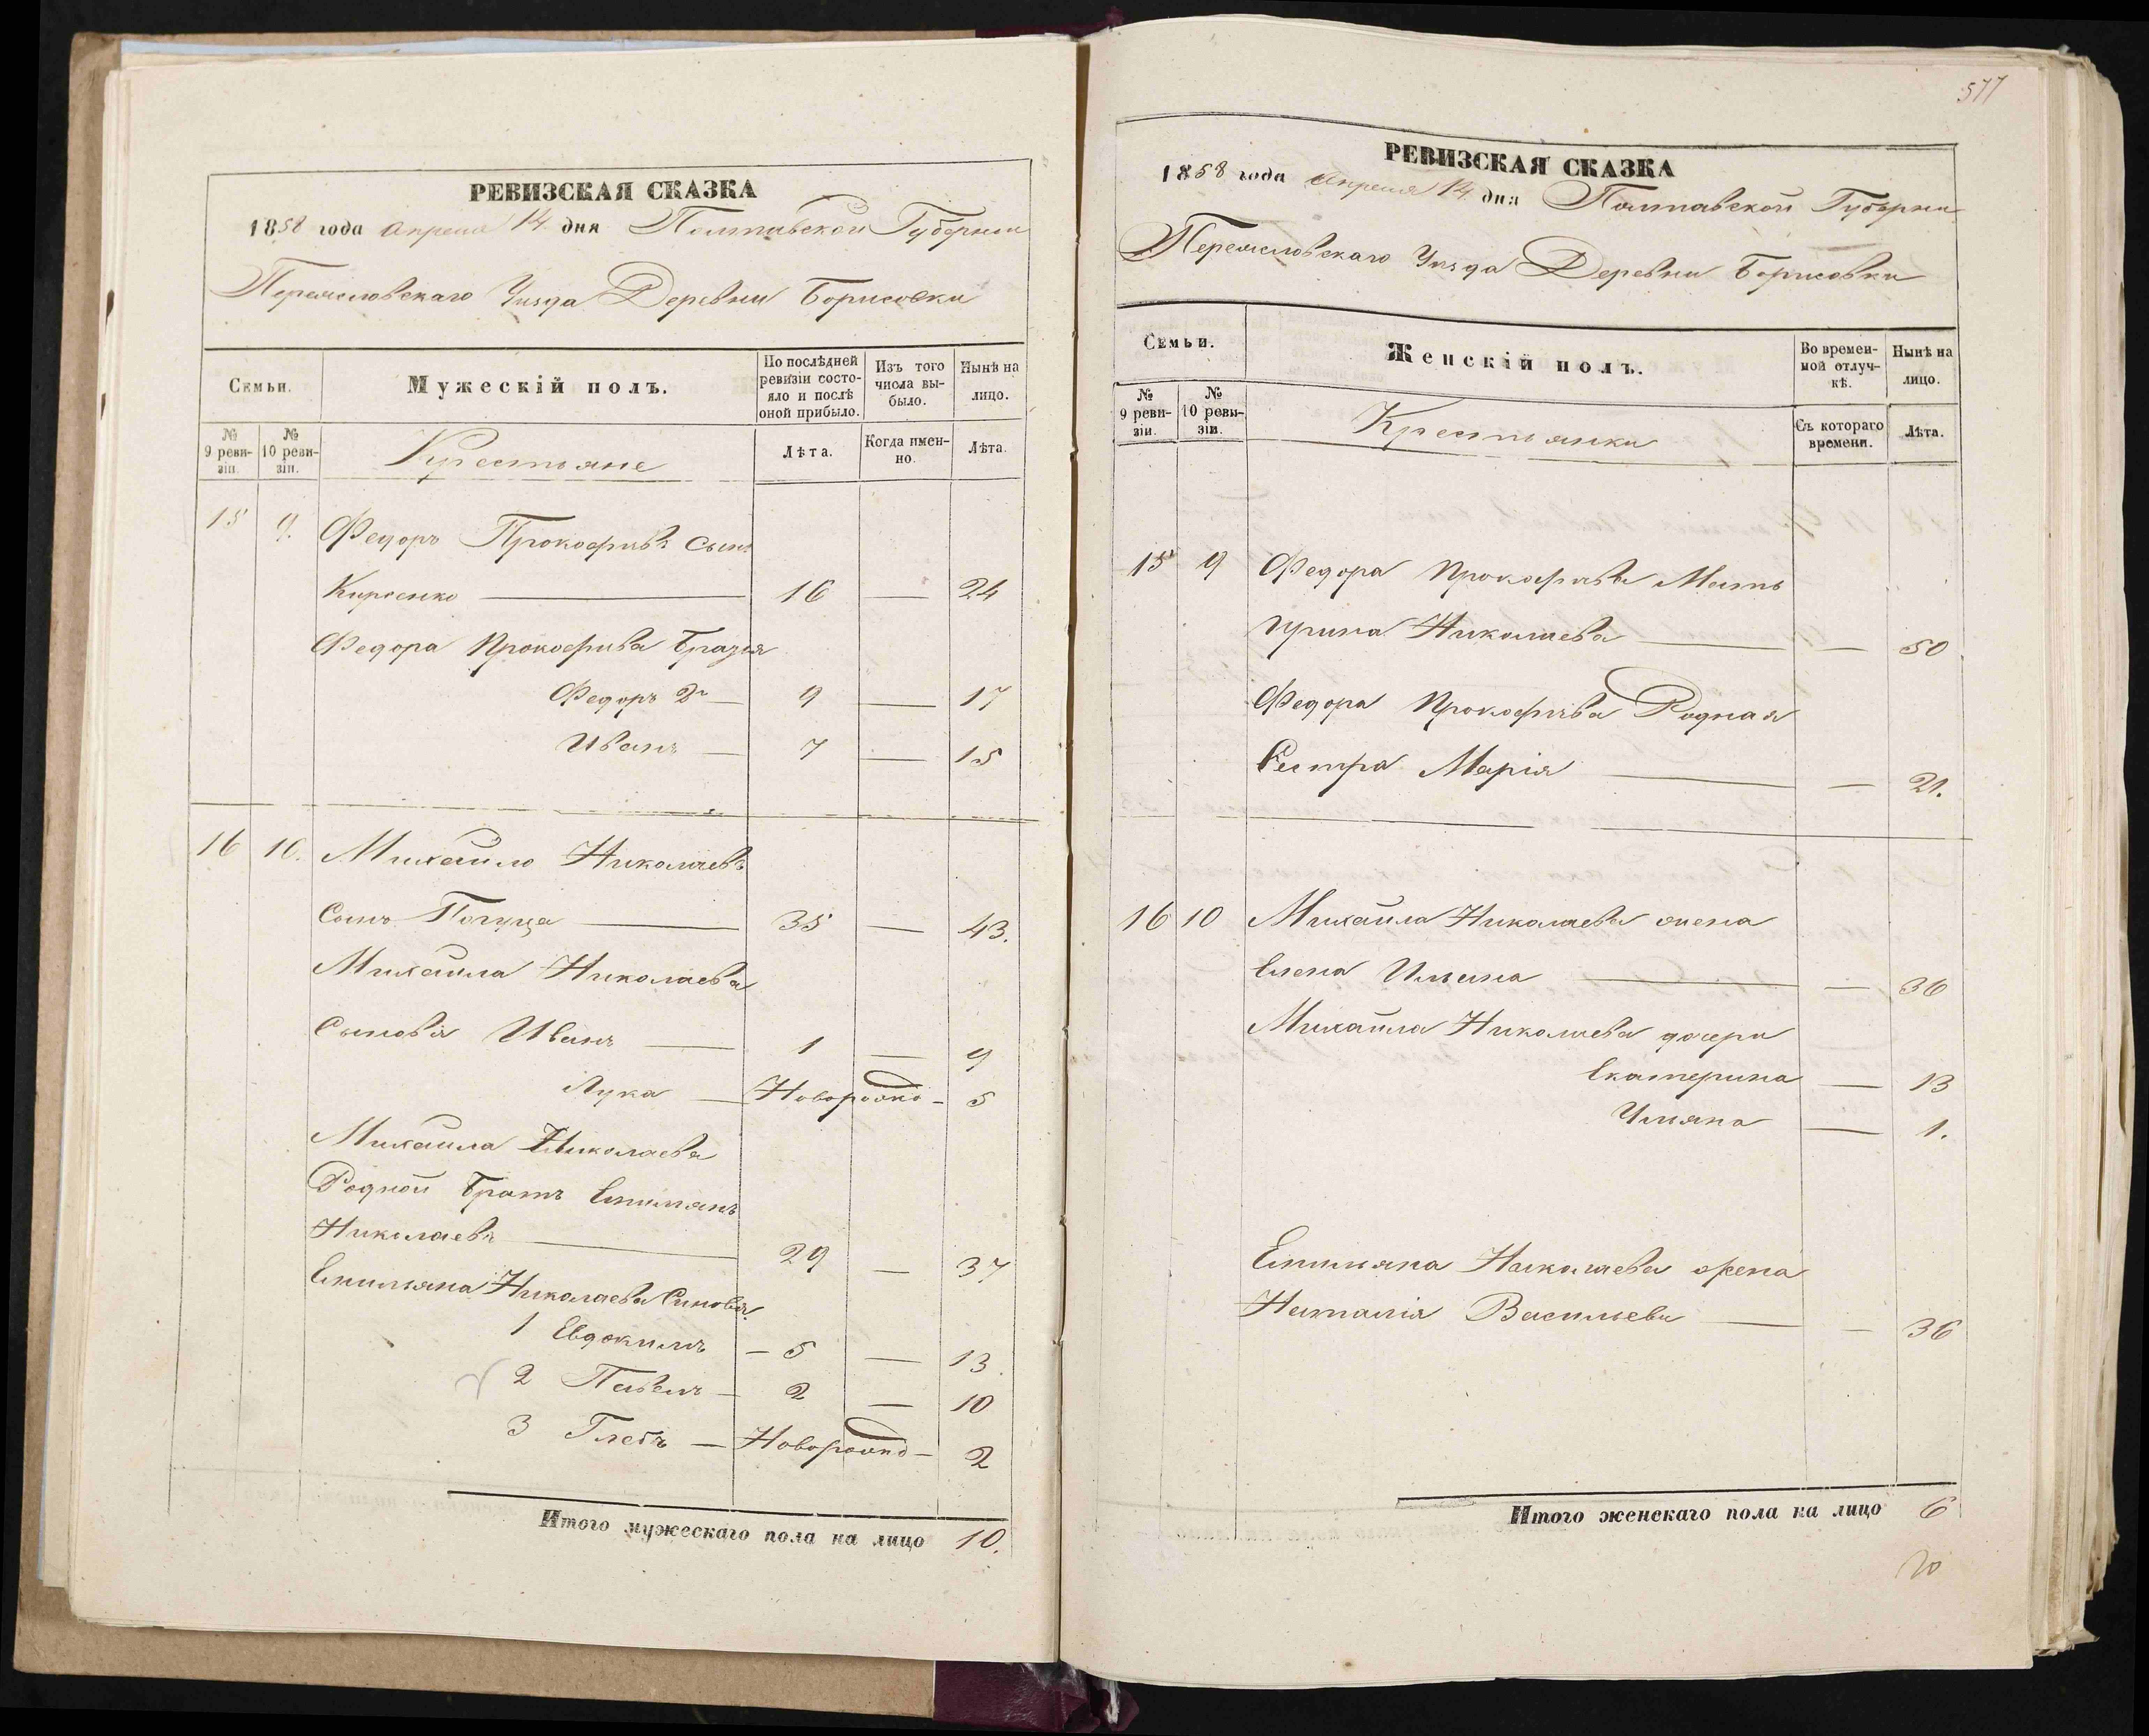 РЕВИЗСКАЯ СКАЗКА
1858 года Апреля 14 дня Полтавской Губернии
Переяславскаго Уезда Деревни Борисовки
Семьи.
Мужескій полъ.
По послѣдней ревизіи состояло и послѣ оной прибыло.
Изъ того числа выбыло.
Нынѣ на лицо.
№ 9 ревизіи.
№ 10 ревизіи.
Крестьяне
Лѣта.
Когда именно.
Лѣта.
15 9. Федоръ Прокофьевъ сынъ
Кирсенко — 16 — 24
Федора Прокофьева Братья
Федоръ 2й — 9 — 17
Иванъ — 7 — 15
16 10. Михайло Николаевъ
Сынъ — 35 — 43.
Михайла Николаева
Сыновья Иванъ — 1 — 9
Лука — Новорожд — 5
Михайла Николаева
Родной Братъ Емилиянъ
Николаевъ — 29 — 37
Емильяна Николаева Синовья.
1 Евдокимъ — 5 — 13.
2 Павелъ — 2 — 10
3 Глебъ — Новорожд — 2
Итого мужескаго пола на лицо 10.
577
РЕВИЗСКАЯ СКАЗКА
1858 года Апреля 14 дня Полтавской Губернии
Переяславскаго Уезда Деревни Борисовки
Семьи.
Женскій полъ.
Во временной отлучкѣ.
Нынѣ на лицо.
№ 9 ревизіи.
№ 10 ревизіи.
Крестьянки
Съ котораго времени.
Лѣта.
15 9 Федора Прокофьева Мать
Ирина Николаева — — 50
Федора Прокофьева Родная
Сестра Марія — — 21.
16 10 Михайла Николаева жена
Елена Ильина — — 36
Михайла Николаева дочери
Екатерина — 13
Ульяна — 1.
Емильяна Николаева жена
Наталія Васильева — — 36
Итого женскаго пола на лицо 6